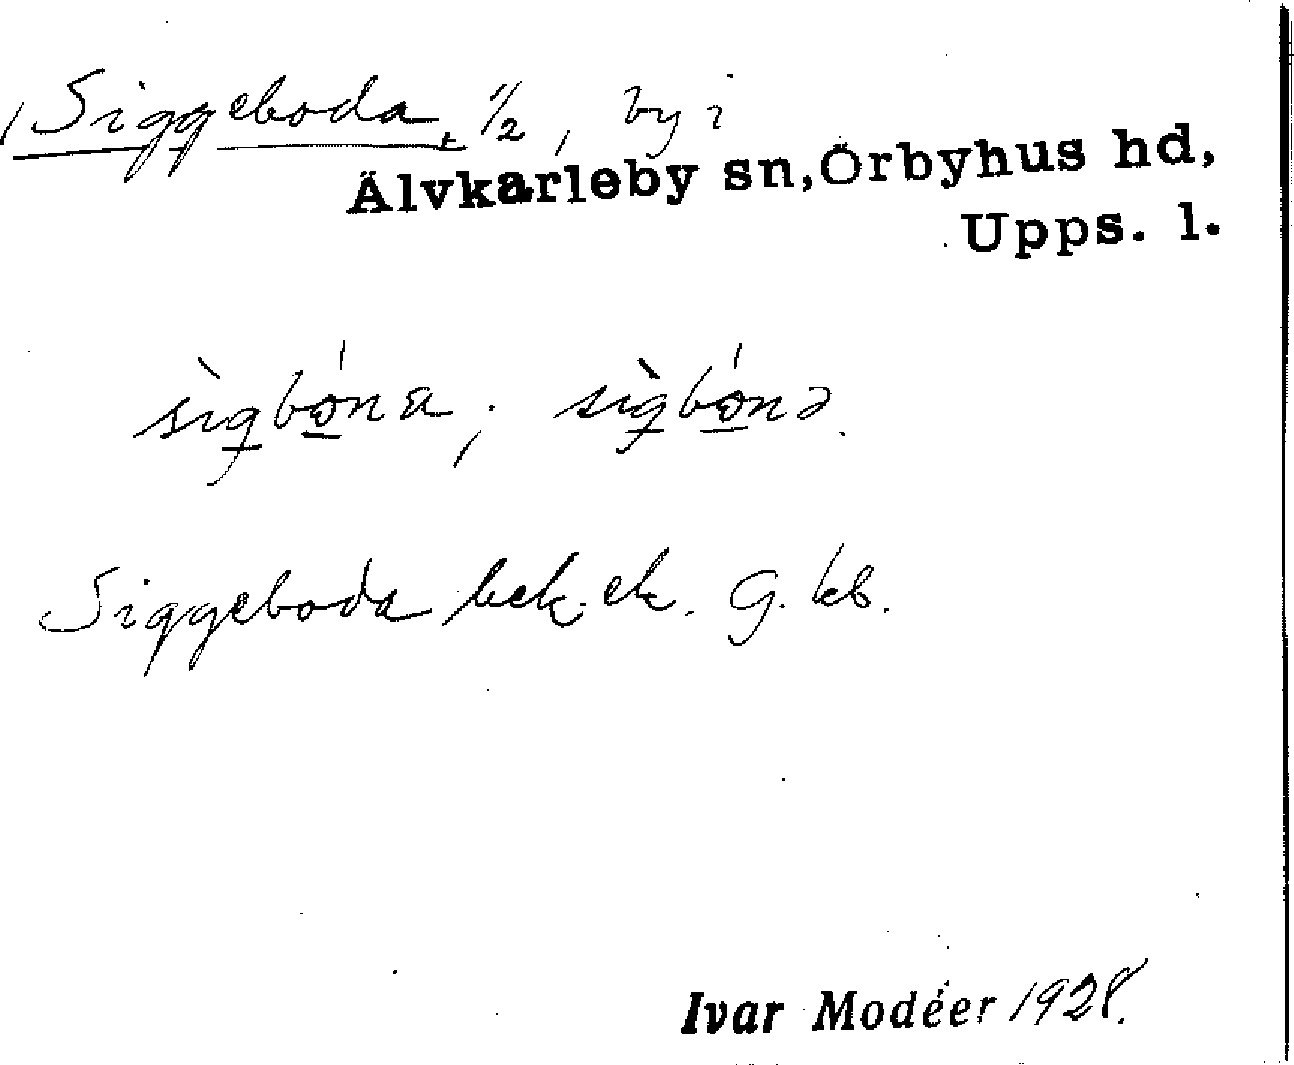 Siggeboda, 1/2, by i
Älvkarleby sn, Örbyhus hd,
Upps. l.
sìgbóna; sìgbónə.
Siggeboda bek. ek. G. kb.
Ivar Modéer 1928.